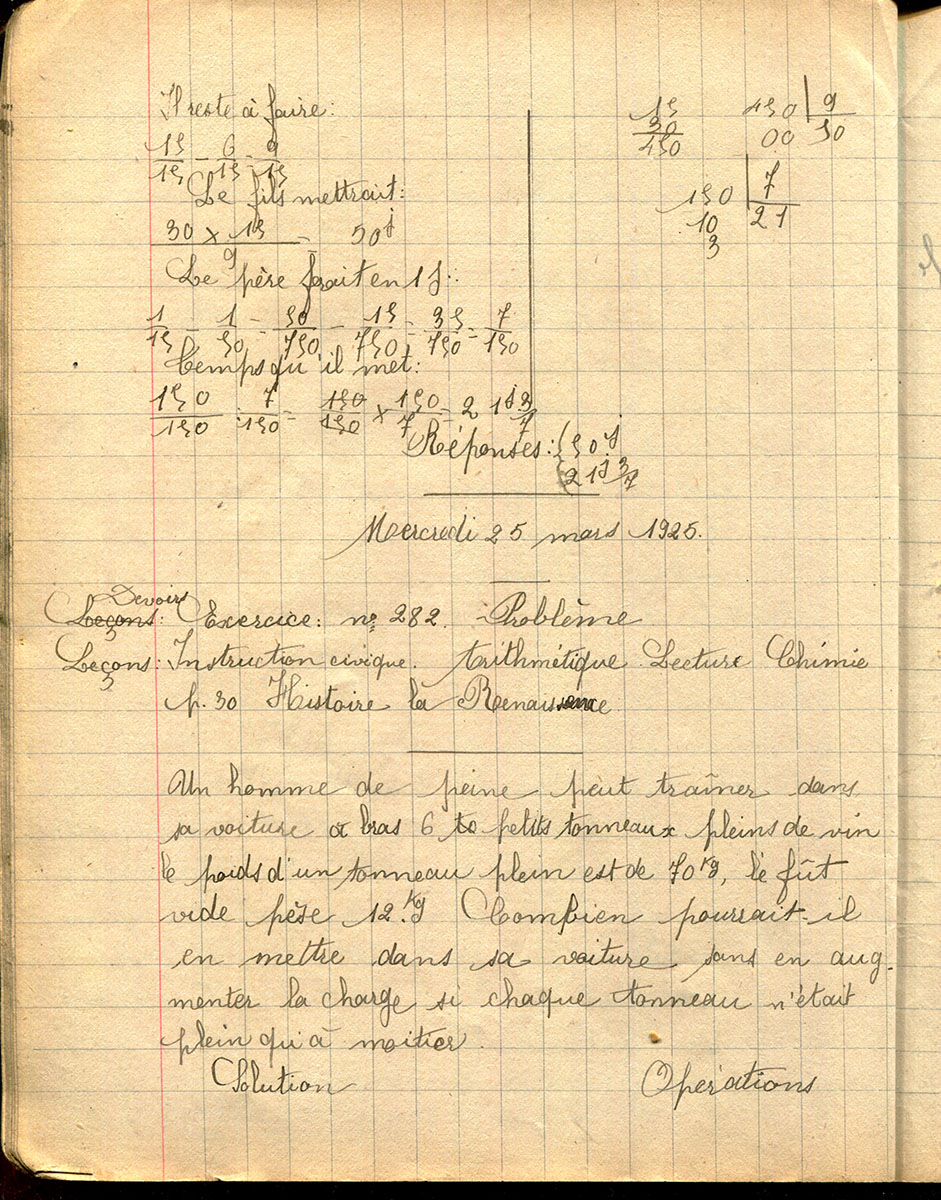 Il reste à faire:
15/15 - 6/15 = 9/15
Le fils mettrait:
30 x 15 / 9 = 50j
Le père ferait en 1 j:
1/15 - 1/50 = 50/750 - 15/750 = 35/750 = 7/150
Temps qu'il met:
150/150 : 7/150 = 150/150 x 150/7 = 21j 3/7
Réponses: { 50j
21j 3/7
15
30
450
450 | 9
00 50
150 | 7
10 21
3
Mercredi 25 mars 1925.
Devoirs
Leçons: Exercice: nº 282. Problème
Leçons: Instruction civique. Arithmétique Lecture Chimie
p. 30 Histoire la Renaissance
Un homme de peine peut traîner dans
sa voiture à bras 6 to petits tonneaux pleins de vin
le poids d'un tonneau plein est de 70 Kg, le fût
vide pèse 12 Kg Combien pourrait-il
en mettre dans sa voiture sans en aug-
menter la charge si chaque tonneau n'était
plein qu'à moitier.
Solution Opérations